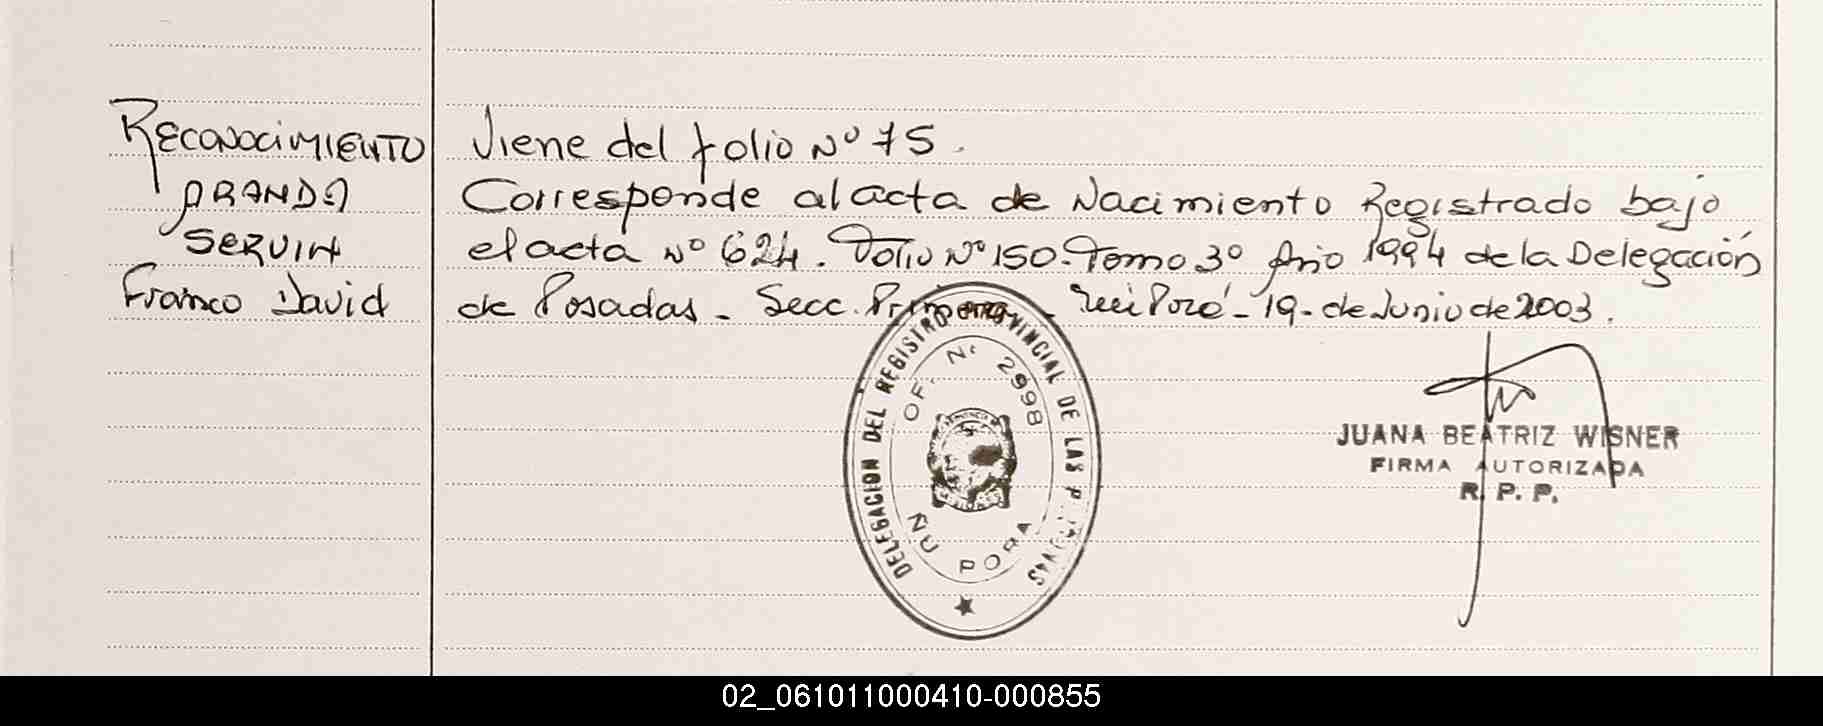 RECONOCIMIENTO
ARANDA
SERVIN
Franco David
Viene del folio Nº 75.
Corresponde al acta de Nacimiento Registrado bajo
el acta Nº 624. Folio Nº 150. Tomo 3º Año 1994 de la Delegación
de Posadas - Secc. Primera - Ñu Porá - 19 - de Junio de 2003.
DELEGACION DEL REGISTRO PROVINCIAL DE LAS PERSONAS
OF. Nº 2998
ÑU PORA
JUANA BEATRIZ WISNER
FIRMA AUTORIZADA
R. P. P.
02_061011000410-000855